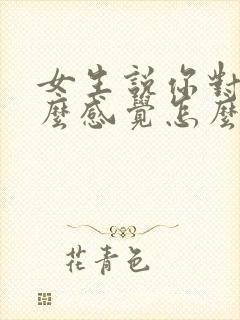 女生說你對
麼感覺怎麼
花青色